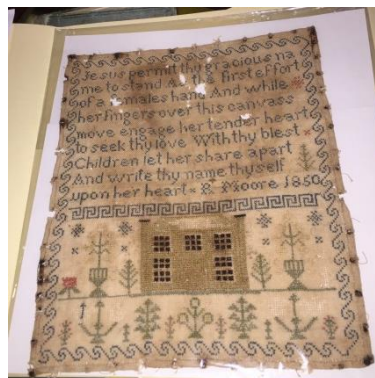 Jesus permit thy gracious na
me to stand As the first effort
of a females hand And while
her fingers over this canvass
move engage her tender heart
to seek thy love With thy blest
Children let her share apart
And write thy name thyself
upon her heart R Moore 1850